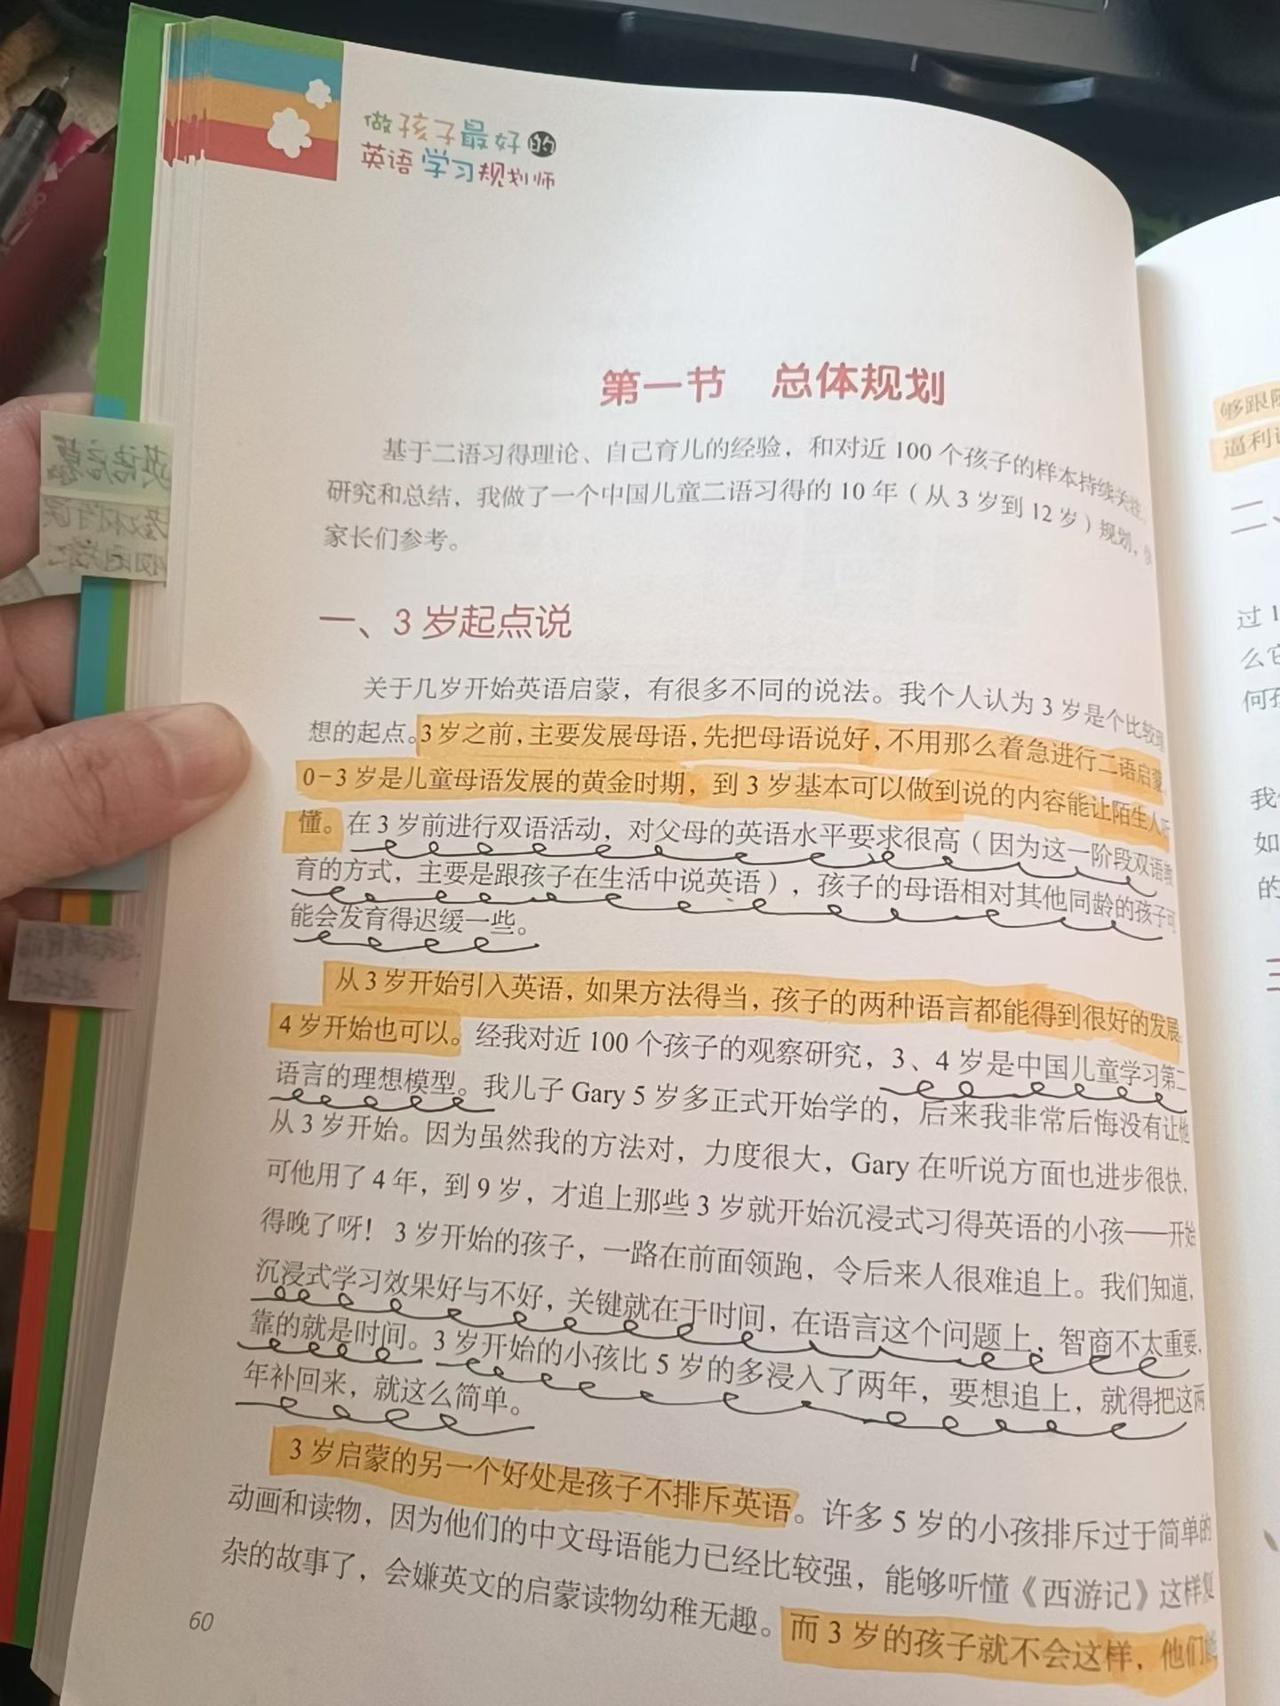 做孩子最好的
英语学习规划师
第一节 总体规划
基于二语习得理论、自己育儿的经验，和对近100个孩子的样本持续关注、
研究和总结，我做了一个中国儿童二语习得的10年（从3岁到12岁）规划，
家长们参考。
一、3岁起点说
关于几岁开始英语启蒙，有很多不同的说法。我个人认为3岁是个比较理
想的起点。3岁之前，主要发展母语，先把母语说好，不用那么着急进行二语启蒙。
0-3岁是儿童母语发展的黄金时期，到3岁基本可以做到说的内容能让陌生人听
懂。在3岁前进行双语活动，对父母的英语水平要求很高（因为这一阶段双语教
育的方式，主要是跟孩子在生活中说英语），孩子的母语相对其他同龄的孩子可
能会发育得迟缓一些。
从3岁开始引入英语，如果方法得当，孩子的两种语言都能得到很好的发展。
4岁开始也可以。经我对近100个孩子的观察研究，3、4岁是中国儿童学习第二
语言的理想模型。我儿子Gary 5岁多正式开始学的，后来我非常后悔没有让他
从3岁开始。因为虽然我的方法对，力度很大，Gary在听说方面也进步很快，
可他用了4年，到9岁，才追上那些3岁就开始沉浸式习得英语的小孩——开始
得晚了呀！3岁开始的孩子，一路在前面领跑，令后来人很难追上。我们知道，
沉浸式学习效果好与不好，关键就在于时间，在语言这个问题上，智商不太重要，
靠的就是时间。3岁开始的小孩比5岁的多浸入了两年，要想追上，就得把这两
年补回来，就这么简单。
3岁启蒙的另一个好处是孩子不排斥英语。许多5岁的小孩排斥过于简单的
动画和读物，因为他们的中文母语能力已经比较强，能够听懂《西游记》这样复
杂的故事了，会嫌英文的启蒙读物幼稚无趣。而3岁的孩子就不会这样，他们能
60
够跟
逼利
二、
过1
么它
何
我
如
的